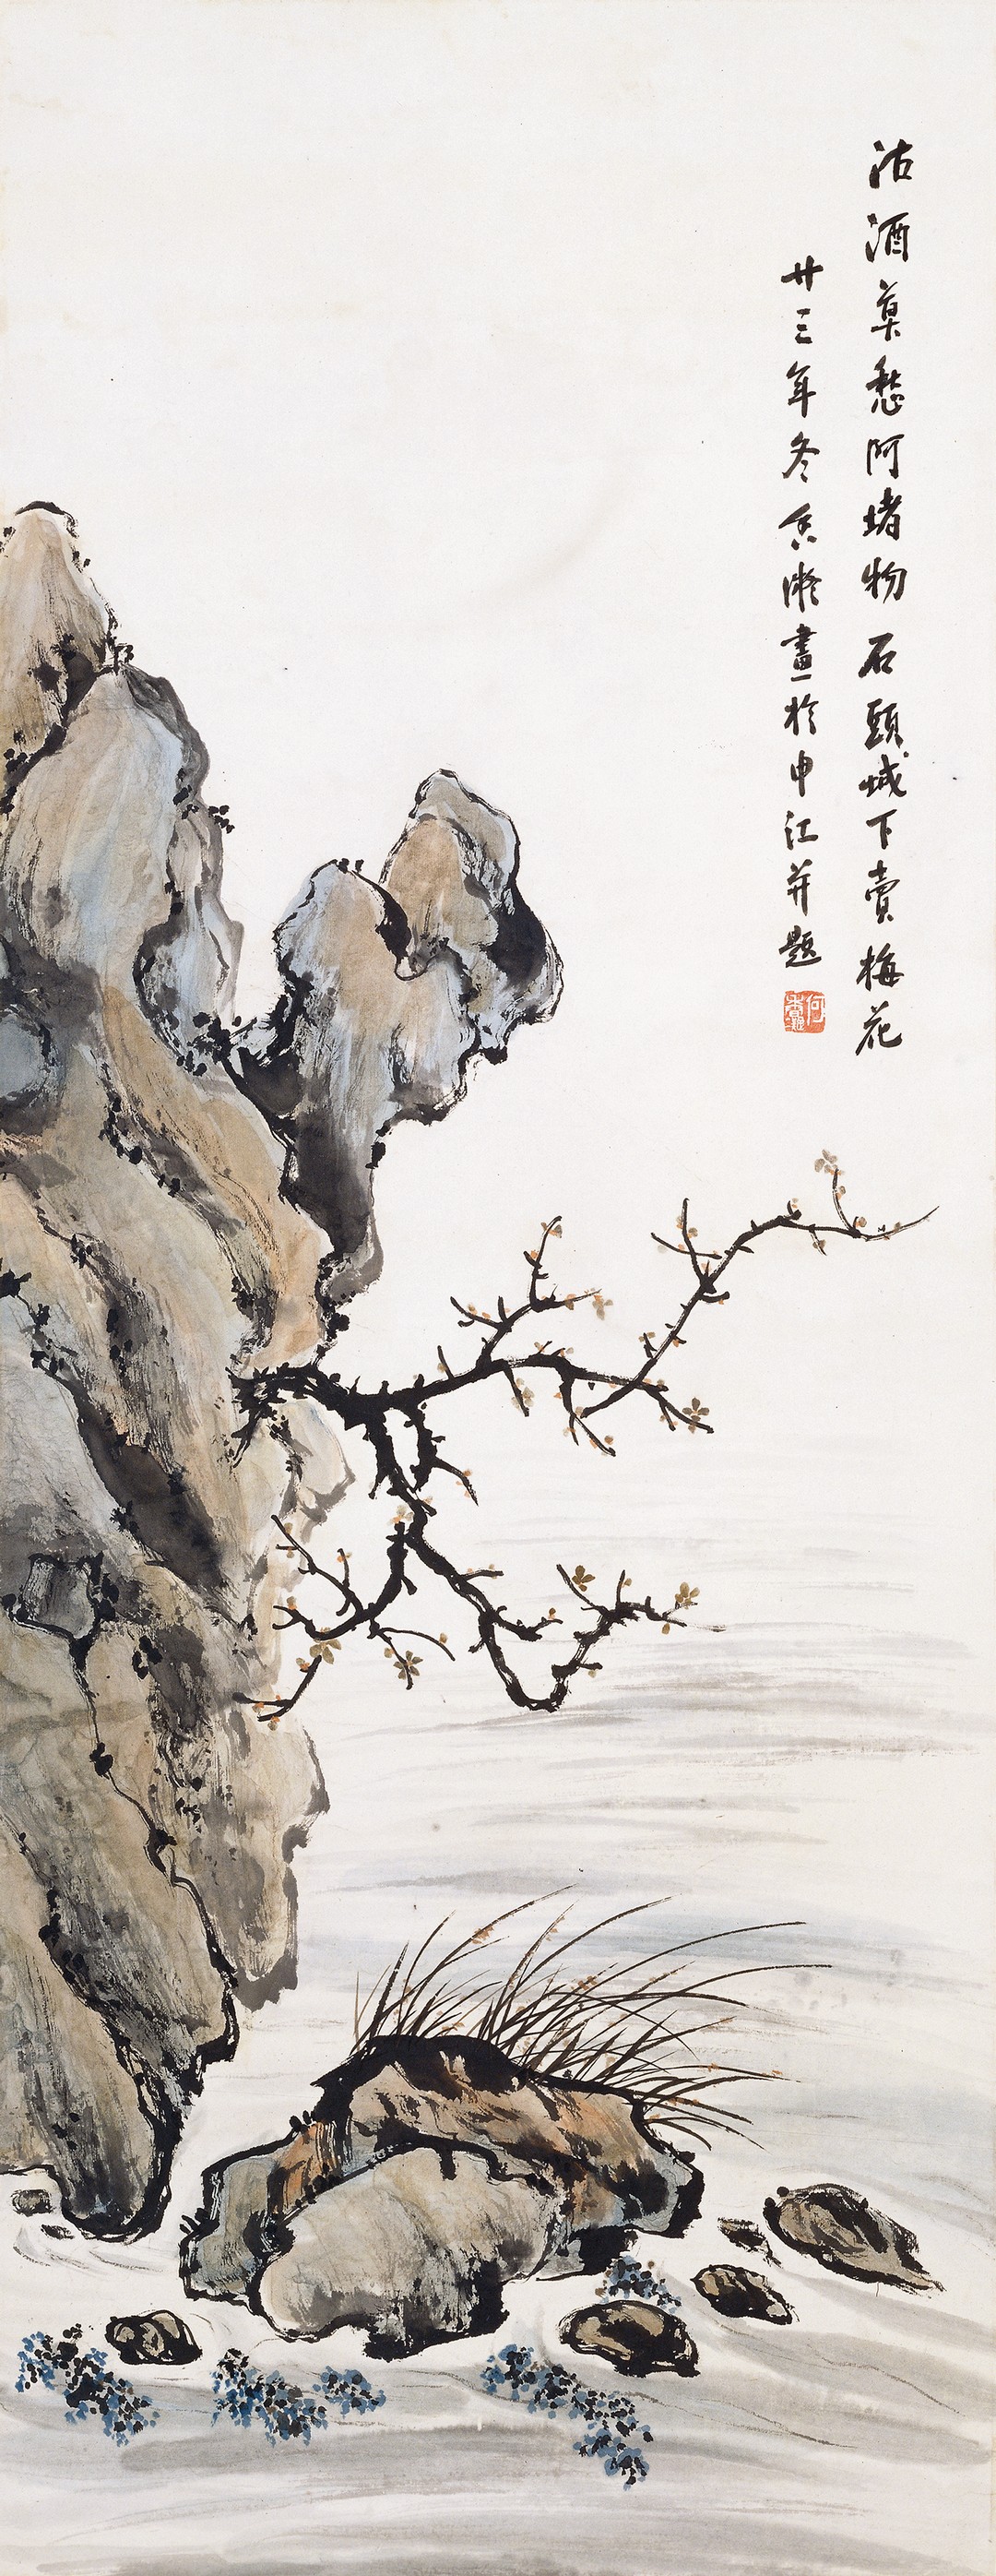 沽酒莫愁阿堵物石頭城下賣梅花
廿三年冬香凝畫於申江并題
何香凝